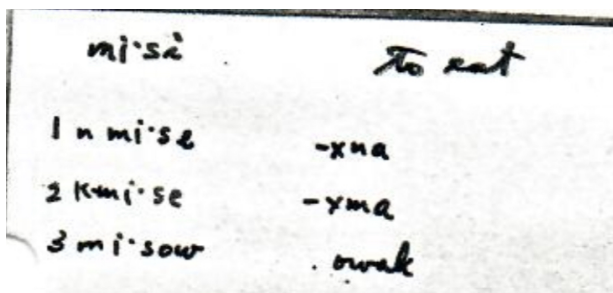 mi·sè to eat
1 n mi·se -xna
2 kmi·se -xma
3 mi·sow . owak